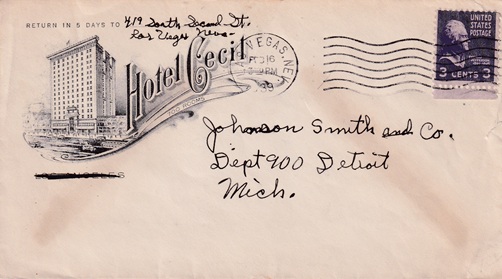 RETURN IN 5 DAYS TO
419 South Second St.
Las Vegas Neva.
Hotel Cecil
700 ROOMS
LAS VEGAS, NEV.
FEB 16
PM
39
UNITED STATES POSTAGE
3 CENTS 3
Johnson Smith and Co.
Dept 900 Detroit
Mich.